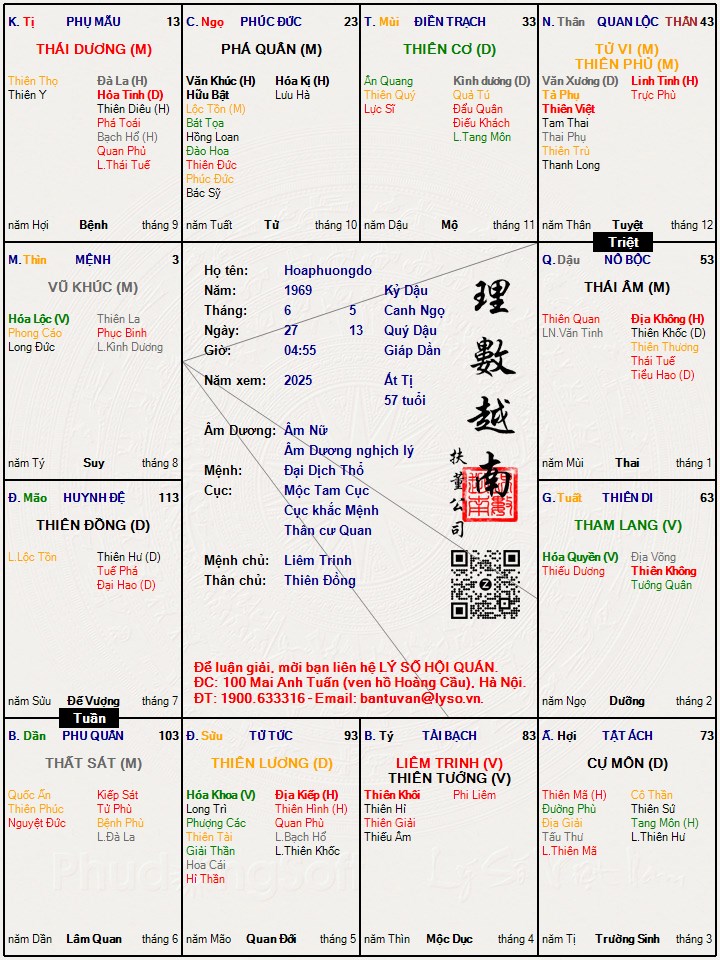 K. Tị PHỤ MẪU 13
THÁI DƯƠNG (M)
Thiên Thọ Đà La (H)
Thiên Y Hỏa Tinh (D)
Thiên Diêu (H)
Phá Toái
Bạch Hổ (H)
Quan Phủ
L.Thái Tuế
năm Hợi Bệnh tháng 9
C. Ngọ PHÚC ĐỨC 23
PHÁ QUÂN (M)
Văn Khúc (H) Hóa Kị (H)
Hữu Bật Lưu Hà
Lộc Tồn (M)
Bát Tọa
Hồng Loan
Đào Hoa
Thiên Đức
Phúc Đức
Bác Sỹ
năm Tuất Tử tháng 10
T. Mùi ĐIỀN TRẠCH 33
THIÊN CƠ (D)
Ân Quang Kình dương (D)
Thiên Quý Quả Tú
Lực Sĩ Đẩu Quân
Điếu Khách
L.Tang Môn
năm Dậu Mộ tháng 11
N. Thân QUAN LỘC THÂN 43
TỬ VI (M)
THIÊN PHỦ (M)
Văn Xương (D) Linh Tinh (H)
Tả Phụ Trực Phù
Thiên Việt
Tam Thai
Thai Phụ
Thiên Trù
Thanh Long
năm Thân Tuyệt tháng 12
Triệt
M. Thìn MỆNH 3
VŨ KHÚC (M)
Hóa Lộc (V) Thiên La
Phong Cáo Phục Binh
Long Đức L.Kình Dương
năm Tý Suy tháng 8
Họ tên: Hoaphuongdo
Năm: 1969 Kỷ Dậu
Tháng: 6 5 Canh Ngọ
Ngày: 27 13 Quý Dậu
Giờ: 04:55 Giáp Dần
Năm xem: 2025 Ất Tị
57 tuổi
Âm Dương: Âm Nữ
Âm Dương nghịch lý
Mệnh: Đại Dịch Thổ
Cục: Mộc Tam Cục
Cục khắc Mệnh
Thân cư Quan
Mệnh chủ: Liêm Trinh
Thân chủ: Thiên Đồng
理數越南
扶董公司
Để luận giải, mời bạn liên hệ LÝ SỐ HỘI QUÁN.
ĐC: 100 Mai Anh Tuấn (ven hồ Hoàng Cầu), Hà Nội.
ĐT: 1900.633316 - Email: bantuvan@lyso.vn.
Q. Dậu NÔ BỘC 53
THÁI ÂM (M)
Thiên Quan Địa Không (H)
LN.Văn Tinh Thiên Khốc (D)
Thiên Thương
Thái Tuế
Tiểu Hao (D)
năm Mùi Thai tháng 1
Đ. Mão HUYNH ĐỆ 113
THIÊN ĐỒNG (D)
L.Lộc Tồn Thiên Hư (D)
Tuế Phá
Đại Hao (D)
năm Sửu Đế Vượng tháng 7
Tuần
G. Tuất THIÊN DI 63
THAM LANG (V)
Hóa Quyền (V) Địa Võng
Thiếu Dương Thiên Không
Tướng Quân
năm Ngọ Dưỡng tháng 2
B. Dần PHU QUÂN 103
THẤT SÁT (M)
Quốc Ấn Kiếp Sát
Thiên Phúc Tử Phù
Nguyệt Đức Bệnh Phù
L.Đà La
năm Dần Lâm Quan tháng 6
Đ. Sửu TỬ TỨC 93
THIÊN LƯƠNG (D)
Hóa Khoa (V) Địa Kiếp (H)
Long Trì Thiên Hình (H)
Phượng Các Quan Phù
Thiên Tài L.Bạch Hổ
Giải Thần L.Thiên Khốc
Hoa Cái
Hỉ Thần
năm Mão Quan Đới tháng 5
B. Tý TÀI BẠCH 83
LIÊM TRINH (V)
THIÊN TƯỚNG (V)
Thiên Khôi Phi Liêm
Thiên Hỉ
Thiên Giải
Thiếu Âm
năm Thìn Mộc Dục tháng 4
Ấ. Hợi TẬT ÁCH 73
CỰ MÔN (D)
Thiên Mã (H) Cô Thần
Đường Phù Thiên Sứ
Địa Giải Tang Môn (H)
Tấu Thư L.Thiên Hư
L.Thiên Mã
năm Tị Trường Sinh tháng 3